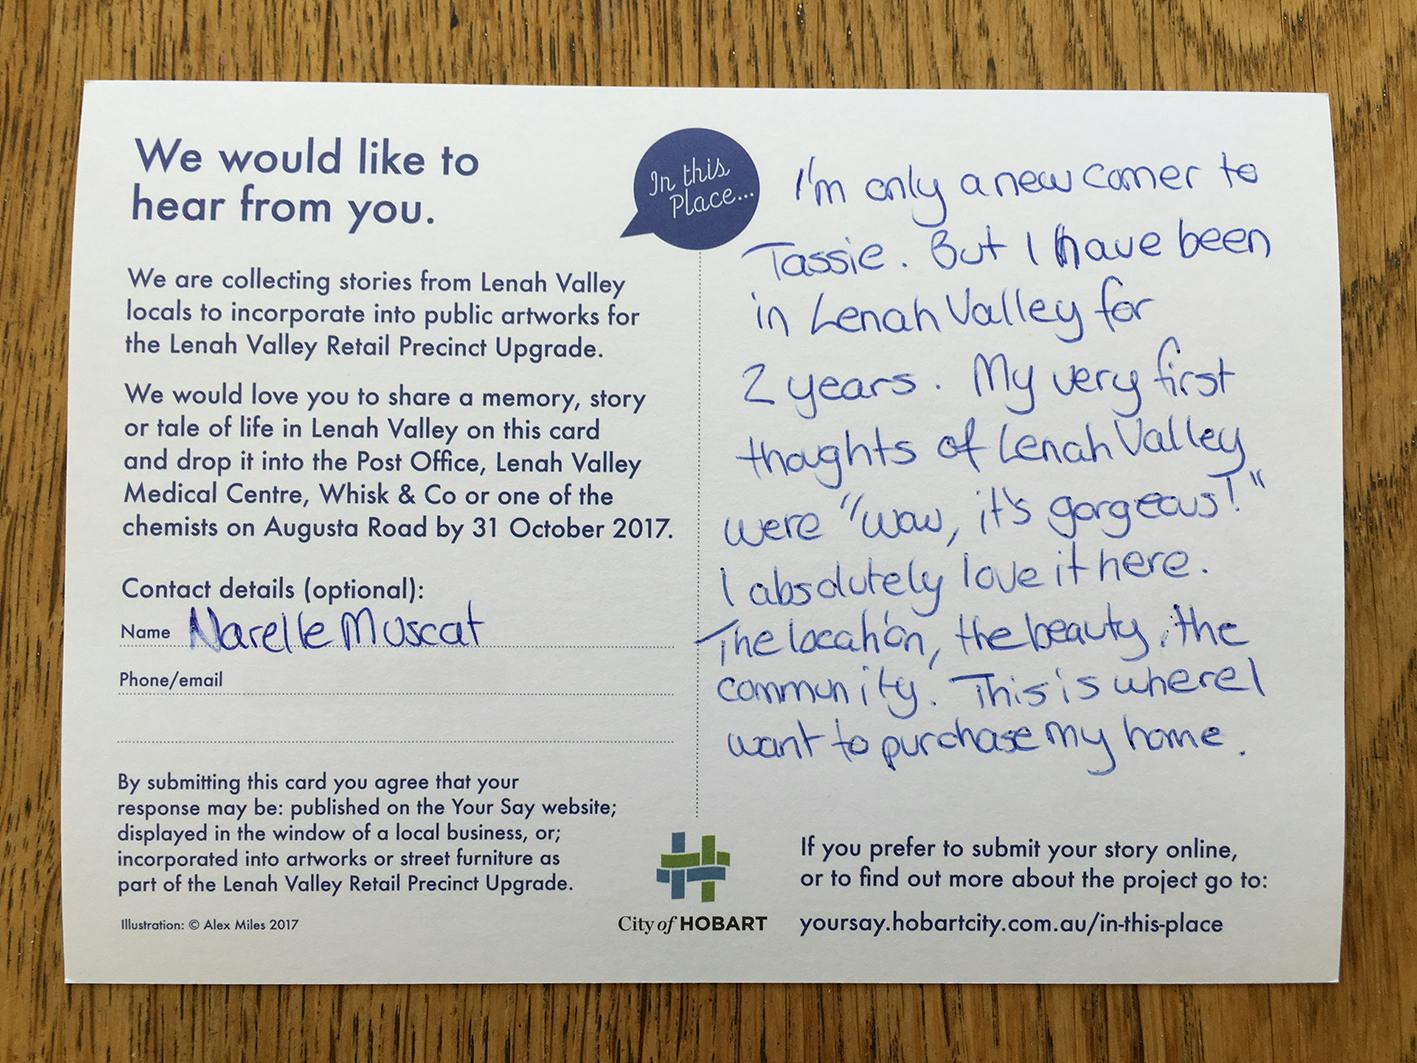 We would like to
hear from you.
We are collecting stories from Lenah Valley
locals to incorporate into public artworks for
the Lenah Valley Retail Precinct Upgrade.
We would love you to share a memory, story
or tale of life in Lenah Valley on this card
and drop it into the Post Office, Lenah Valley
Medical Centre, Whisk & Co or one of the
chemists on Augusta Road by 31 October 2017.
Contact details (optional):
Name Narelle Muscat
Phone/email
By submitting this card you agree that your
response may be: published on the Your Say website;
displayed in the window of a local business, or;
incorporated into artworks or street furniture as
part of the Lenah Valley Retail Precinct Upgrade.
Illustration: © Alex Miles 2017
In this
Place...
I'm only a new comer to
Tassie. But I have been
in Lenah Valley for
2 years. My very first
thoughts of Lenah Valley
were "wow, it's gorgeous!"
I absolutely love it here.
The location, the beauty, the
community. This is where I
want to purchase my home.
City of HOBART
If you prefer to submit your story online,
or to find out more about the project go to:
yoursay.hobartcity.com.au/in-this-place